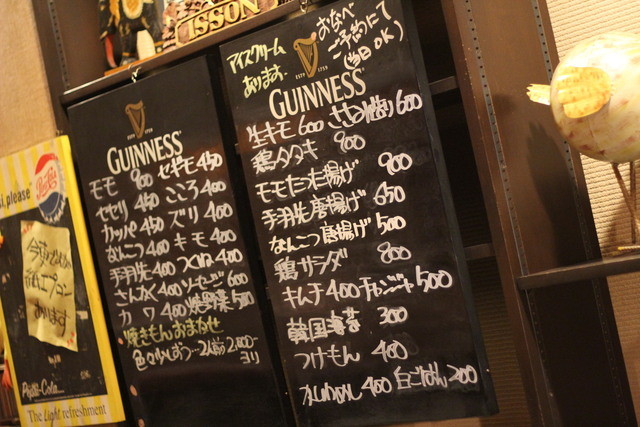 ISSON
アイスクリーム
あります。
おなべ
ご予約にて
(当日OK)
ESTD 1759
GUINNESS
生キモ 600
600
鶏タタキ 900
モモたつた揚げ 900
手羽先唐揚げ 650
なんこつ唐揚げ 500
鶏サラダ 800
キムチ 400 チャンジャ 500
韓国海苔 300
つけもん 400
400 白ごはん 200
GUINNESS
モモ 900 セギモ 450
セセリ 450 こころ 400
カッパ 450 ズリ 400
なんこつ 400 キモ 400
手羽先 400 つくね 400
さんかく 400 ソーセージ 600
カワ 400 焼野菜 500
焼きもんおまかせ
色々少しずつ… 2人前 2,000-
より
si, please
Pepsi
あります
Pepsi-Cola
The Light refreshment